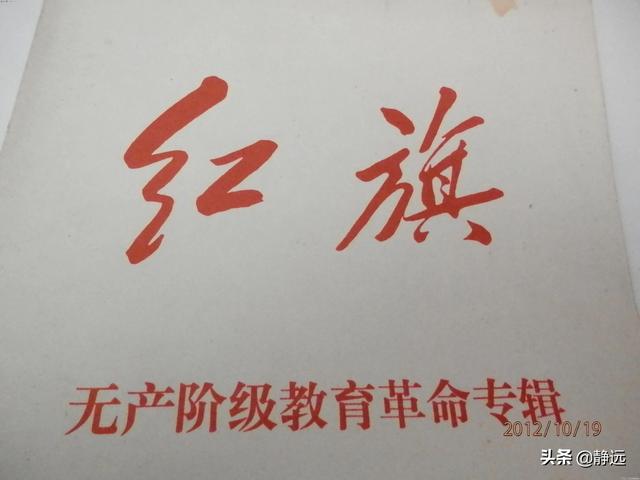 红旗
无产阶级教育革命专辑
2012/10/19
头条 @静远